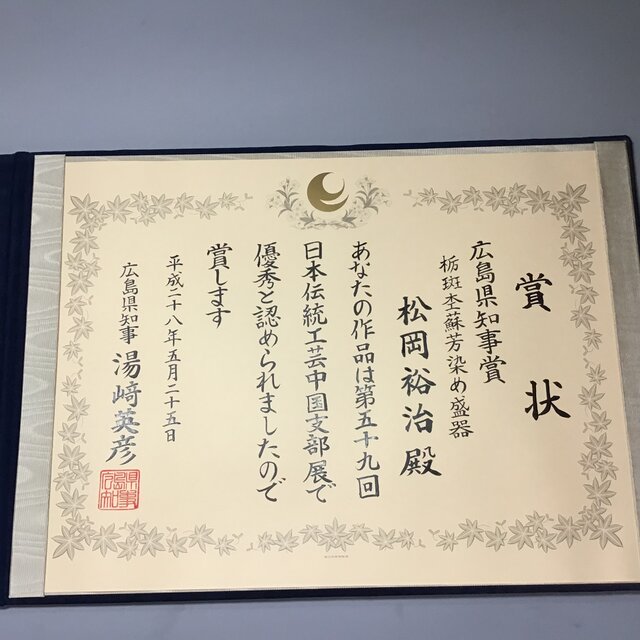 賞状
広島県知事賞
栃斑杢蘇芳染め盛器
松岡裕治殿
あなたの作品は第五十九回
日本伝統工芸中国支部展で
優秀と認められましたので
賞します
平成二十八年五月二十五日
広島県知事 湯﨑英彦